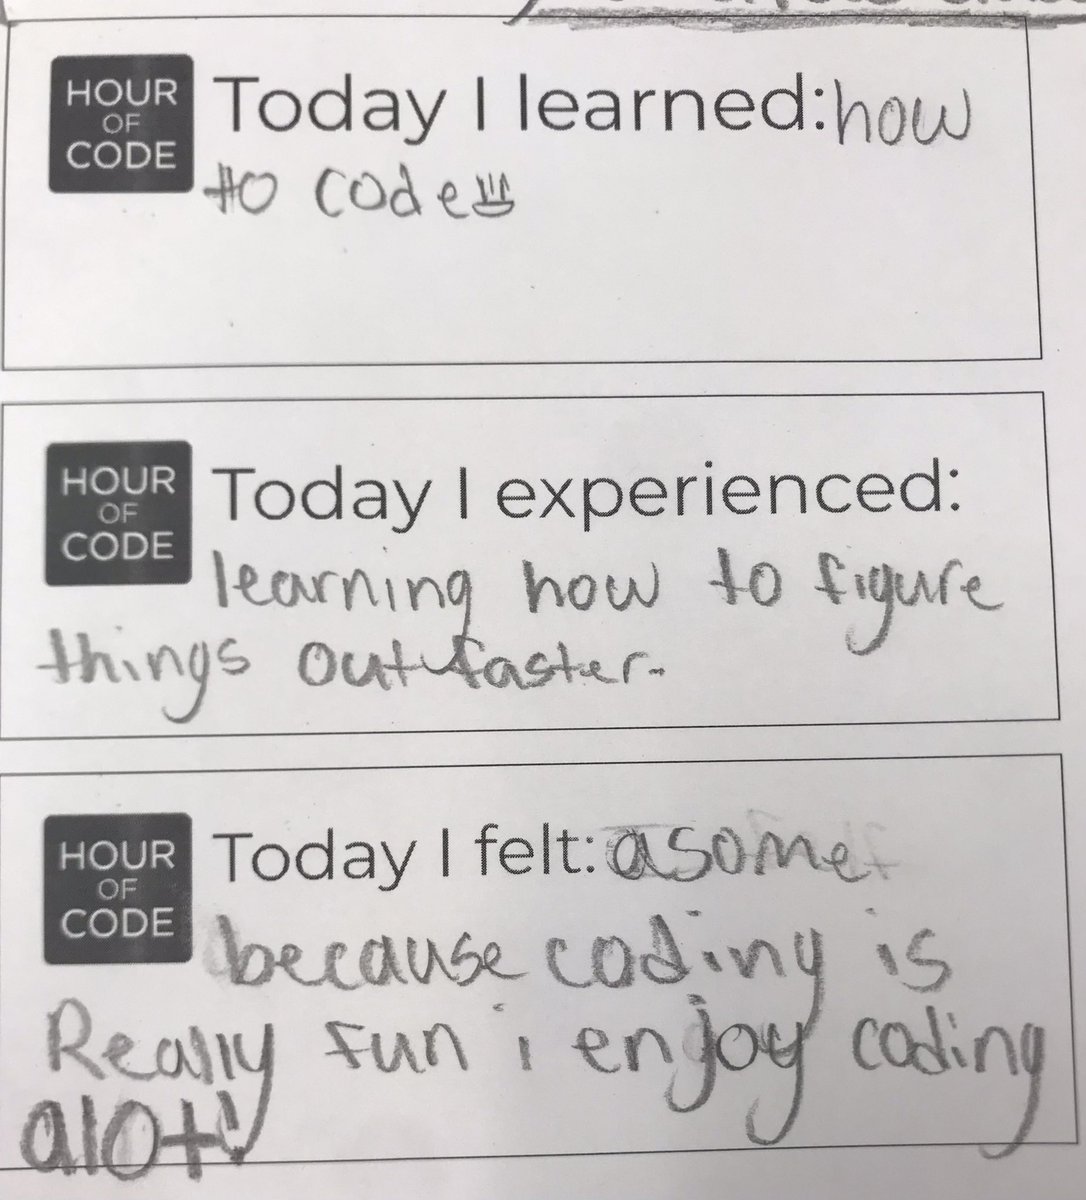 HOUR
OF
CODE
Today I learned: how
to code
HOUR
OF
CODE
Today I experienced:
learning how to figure
things out faster.
HOUR
OF
CODE
Today I felt: asome
because coding is
Really fun i enjoy coding
alot